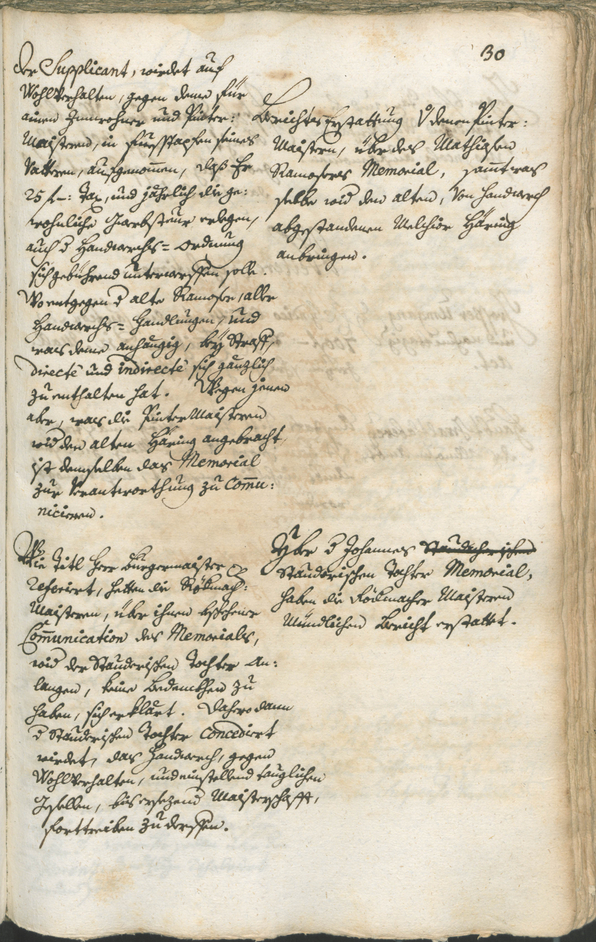 30
Der Supplicant, wirdet auf
Wohlverhalten, gegen deme für
ainen Innwohner und Pinter:
Maistern, in fuesstapfen seines
Vattern, aufgenommen, dass Er
25 f. Tax, und jährlich die ge:
wohnliche Herbsteur erlegen,
auch d Handwerchs=Ordnung
sich gebührend unterwerffen solle.
Wo entgegen d alte Ramoser, aller
Handwerchs=Handlungen, und
was deme anhängig, bey Straff,
directe und indirecte sich gänzlich
zu enthalten hat. Wegen jenen
aber, was die Pinter Maistern
wid den alten Häring angebracht
ist demselben das Memorial
zur Verantworthung zu Commu:
niciern.
Berichts Erstattung V denen Pinter:
Maistern, über des Mathiasen
Ramosers Memorial, sammt was
selbe wid den alten, von Handwerch
abgestandenen Melchior Häring
anbringen.
Wie Titl Herr Burgermaister
referirt, hetten die Rökmach:
Maistern, über ihnen beschehene
Communication des Memorials,
wid der Stauderischen Tochter An:
langen, keine Bedenckhen zu
haben, sich erklärt. Dahero dann
d Stauderischen Tochter concedirt
wirdet, das Handwerch, gegen
Wohlverhalten, und einstellend tauglichen
Gesellen, bis ersezend Maisterschafft,
forttreiben zu derffen.
Über d Johannes
Stauderischen Tochter Memorial,
haben die Rökmacher Maistern
Mündlichen Bericht erstattet.